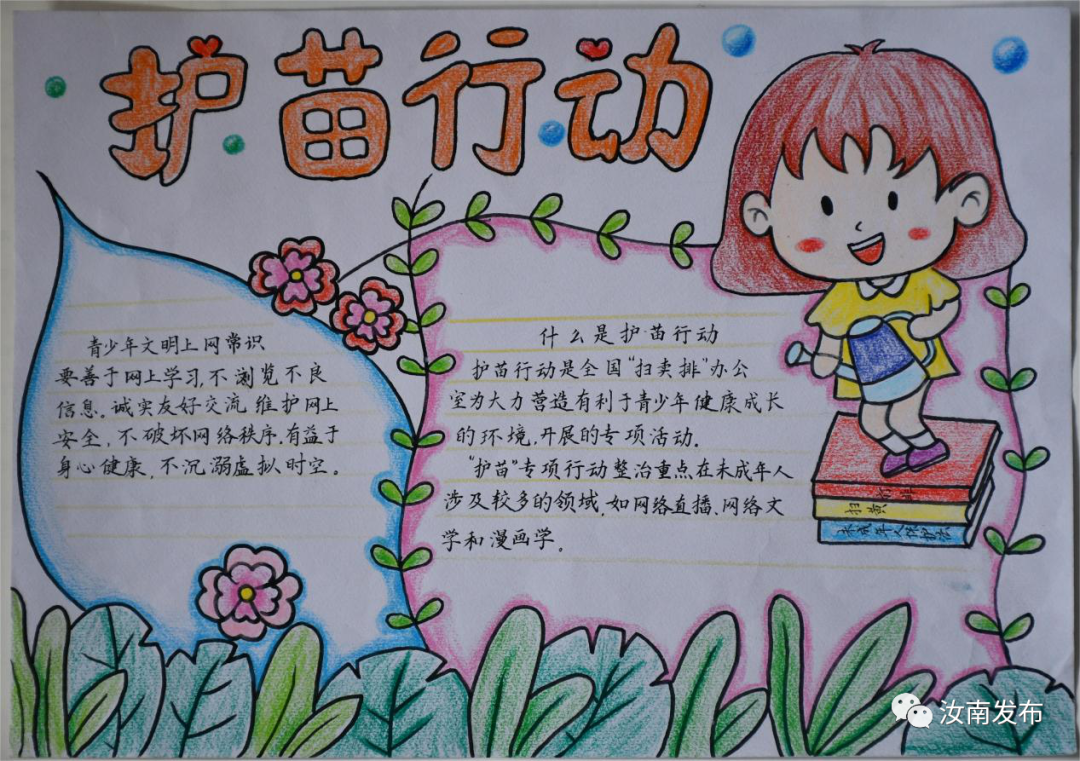 护苗行动
青少年文明上网常识
要善于网上学习,不浏览不良
信息。诚实友好交流 维护网上
安全,不破坏网络秩序.有益于
身心健康,不沉溺虚拟时空。
什么是护苗行动
护苗行动是全国“扫卖排”办公
室为大力营造有利于青少年健康成长
的环境.开展的专项活动.
“护苗”专项行动整治重点在未成年人
涉及较多的领域.如网络直播、网络文
学和漫画学。
扫黄
未成年人保护法
汝南发布